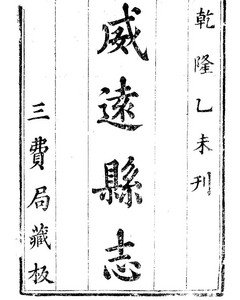 乾隆乙未刊
威遠縣志
三費局藏板